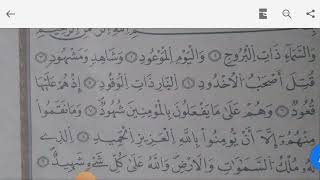 وَالسَّمَآءِ ذَاتِ الْبُرُوجِ ۝١ وَالْيَوْمِ الْمَوْعُودِ ۝٢ وَشَاهِدٍ وَمَشْهُودٍ ۝٣
قُتِلَ أَصْحَٰبُ الْأُخْدُودِ ۝٤ النَّارِ ذَاتِ الْوَقُودِ ۝٥ إِذْ هُمْ عَلَيْهَا
قُعُودٌ ۝٦ وَهُمْ عَلَىٰ مَا يَفْعَلُونَ بِالْمُؤْمِنِينَ شُهُودٌ ۝٧ وَمَا نَقَمُوا۟
مِنْهُمْ إِلَّآ أَنْ يُؤْمِنُوا۟ بِاللَّهِ الْعَزِيزِ الْحَمِيدِ ۝٨ الَّذِى
لَهُۥ مُلْكُ السَّمَٰوَٰتِ وَالْأَرْضِ وَاللَّهُ عَلَىٰ كُلِّ شَىْءٍ شَهِيدٌ